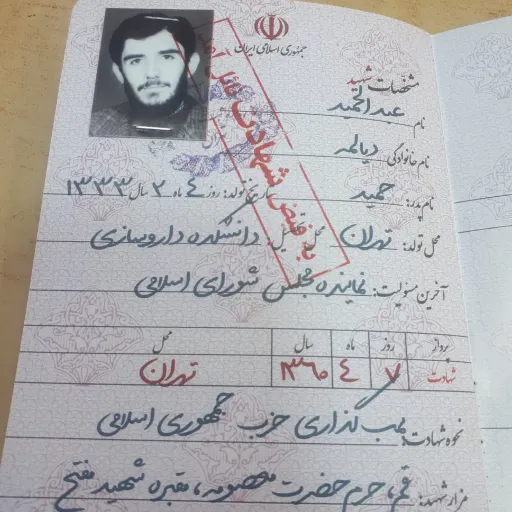 جمهوری اسلامی ایران
مشخصات شهید
نام: عبدالحمید
نام خانوادگی: دیالمه
نام پدر: حمید تاریخ تولد: روز ٤ ماه ٢ سال ١٣٣٣
محل تولد: تهران محل تحصیل: دانشکده داروسازی
آخرین مسئولیت: نماینده مجلس شورای اسلامی
پرواز روز ماه سال محل
شهادت ٧ ٤ ١٣٦٠ تهران
نحوه شهادت: بمب گذاری حزب جمهوری اسلامی
مزار شهید: قم، حرم حضرت معصومه، مقبره شهید مفتح
به فیض شهادت نائل آمد